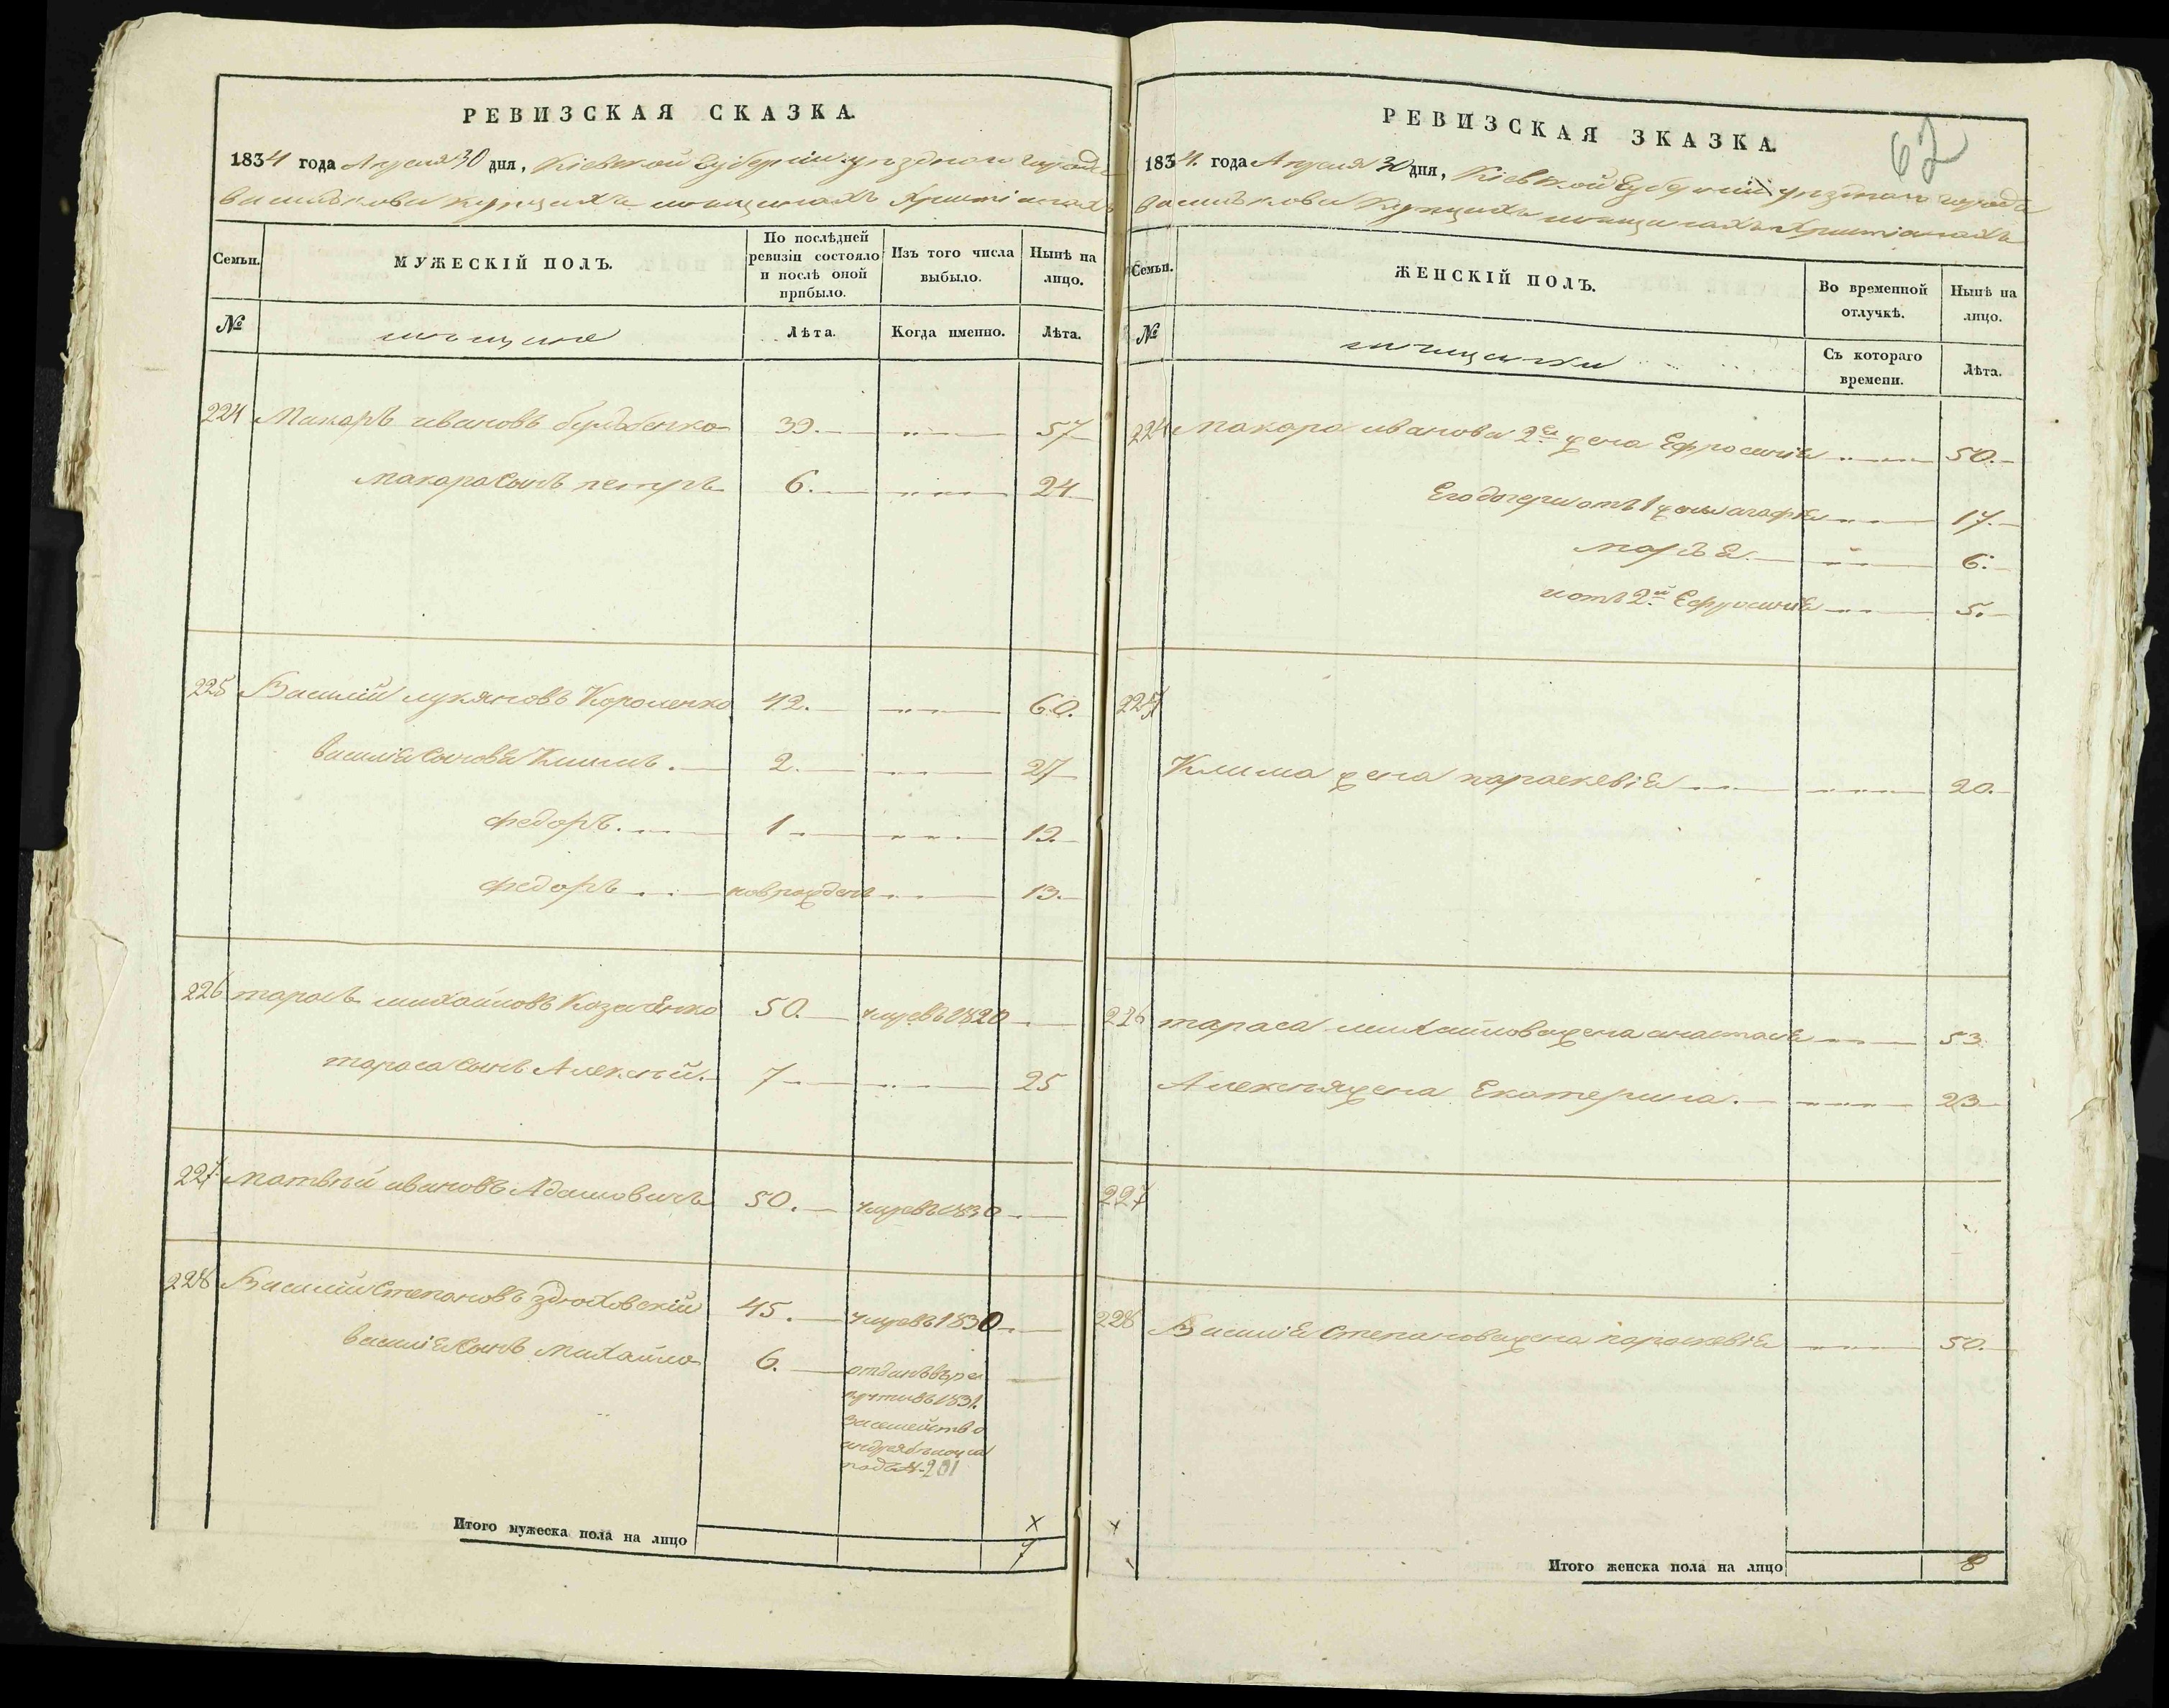 РЕВИЗСКАЯ СКАЗКА.
1834 года Апреля 30 дня, Кіевской губерніи уезднаго города
Василькова купцахъ мещанахъ Христіанахъ
Семьи.
МУЖЕСКІЙ ПОЛЪ.
По послѣдней ревизіи состояло и послѣ оной прибыло.
Изъ того числа выбыло.
Нынѣ на лицо.
№
мещане
Лѣта.
Когда именно.
Лѣта.
224 Макаръ ивановъ 39. 57
Макара сынъ петръ 6. 24
225 Василій лукяновъ Короленко 42. 60.
Василія сыновя Климъ. 2. 27
федоръ. 1 19.
федоръ новрожденъ 13.
226 тарасъ михайловъ Козаченко 50. умре въ 1820
тараса сынъ Алексей. 7 25
227 матвей ивановъ Адамовичъ 50. умре въ 1830
228 Василій Степановъ Здюховскій 45. умре въ 1830
василія сынъ Михайло 6. отданъ въ ре
круты въ 1831.
за семейство
андрея
подъ № 201
Итого мужеска пола на лицо 7
РЕВИЗСКАЯ ЗКАЗКА.
62
1834. года Апреля 30 дня, Кіевской Губерніи уезднаго города
Василькова Купцахъ мещанахъ Христіанахъ
Семьи.
ЖЕНСКІЙ ПОЛЪ.
Во временной отлучкѣ.
Нынѣ на лицо.
№
мещанки
Съ котораго времени.
Лѣта.
224 Макара иванова 2я жена Ефросинія 50.
Его дочери отъ 1 жены агафия 17.
6.
и отъ 2й Ефросинія 5.
225
Клима жена параскевія 20.
226 тараса михайлова жена анастасія 53
Алексея жена Екатерина. 23
227
228 Василія Степанова жена параскевія 50.
Итого женска пола на лицо 8